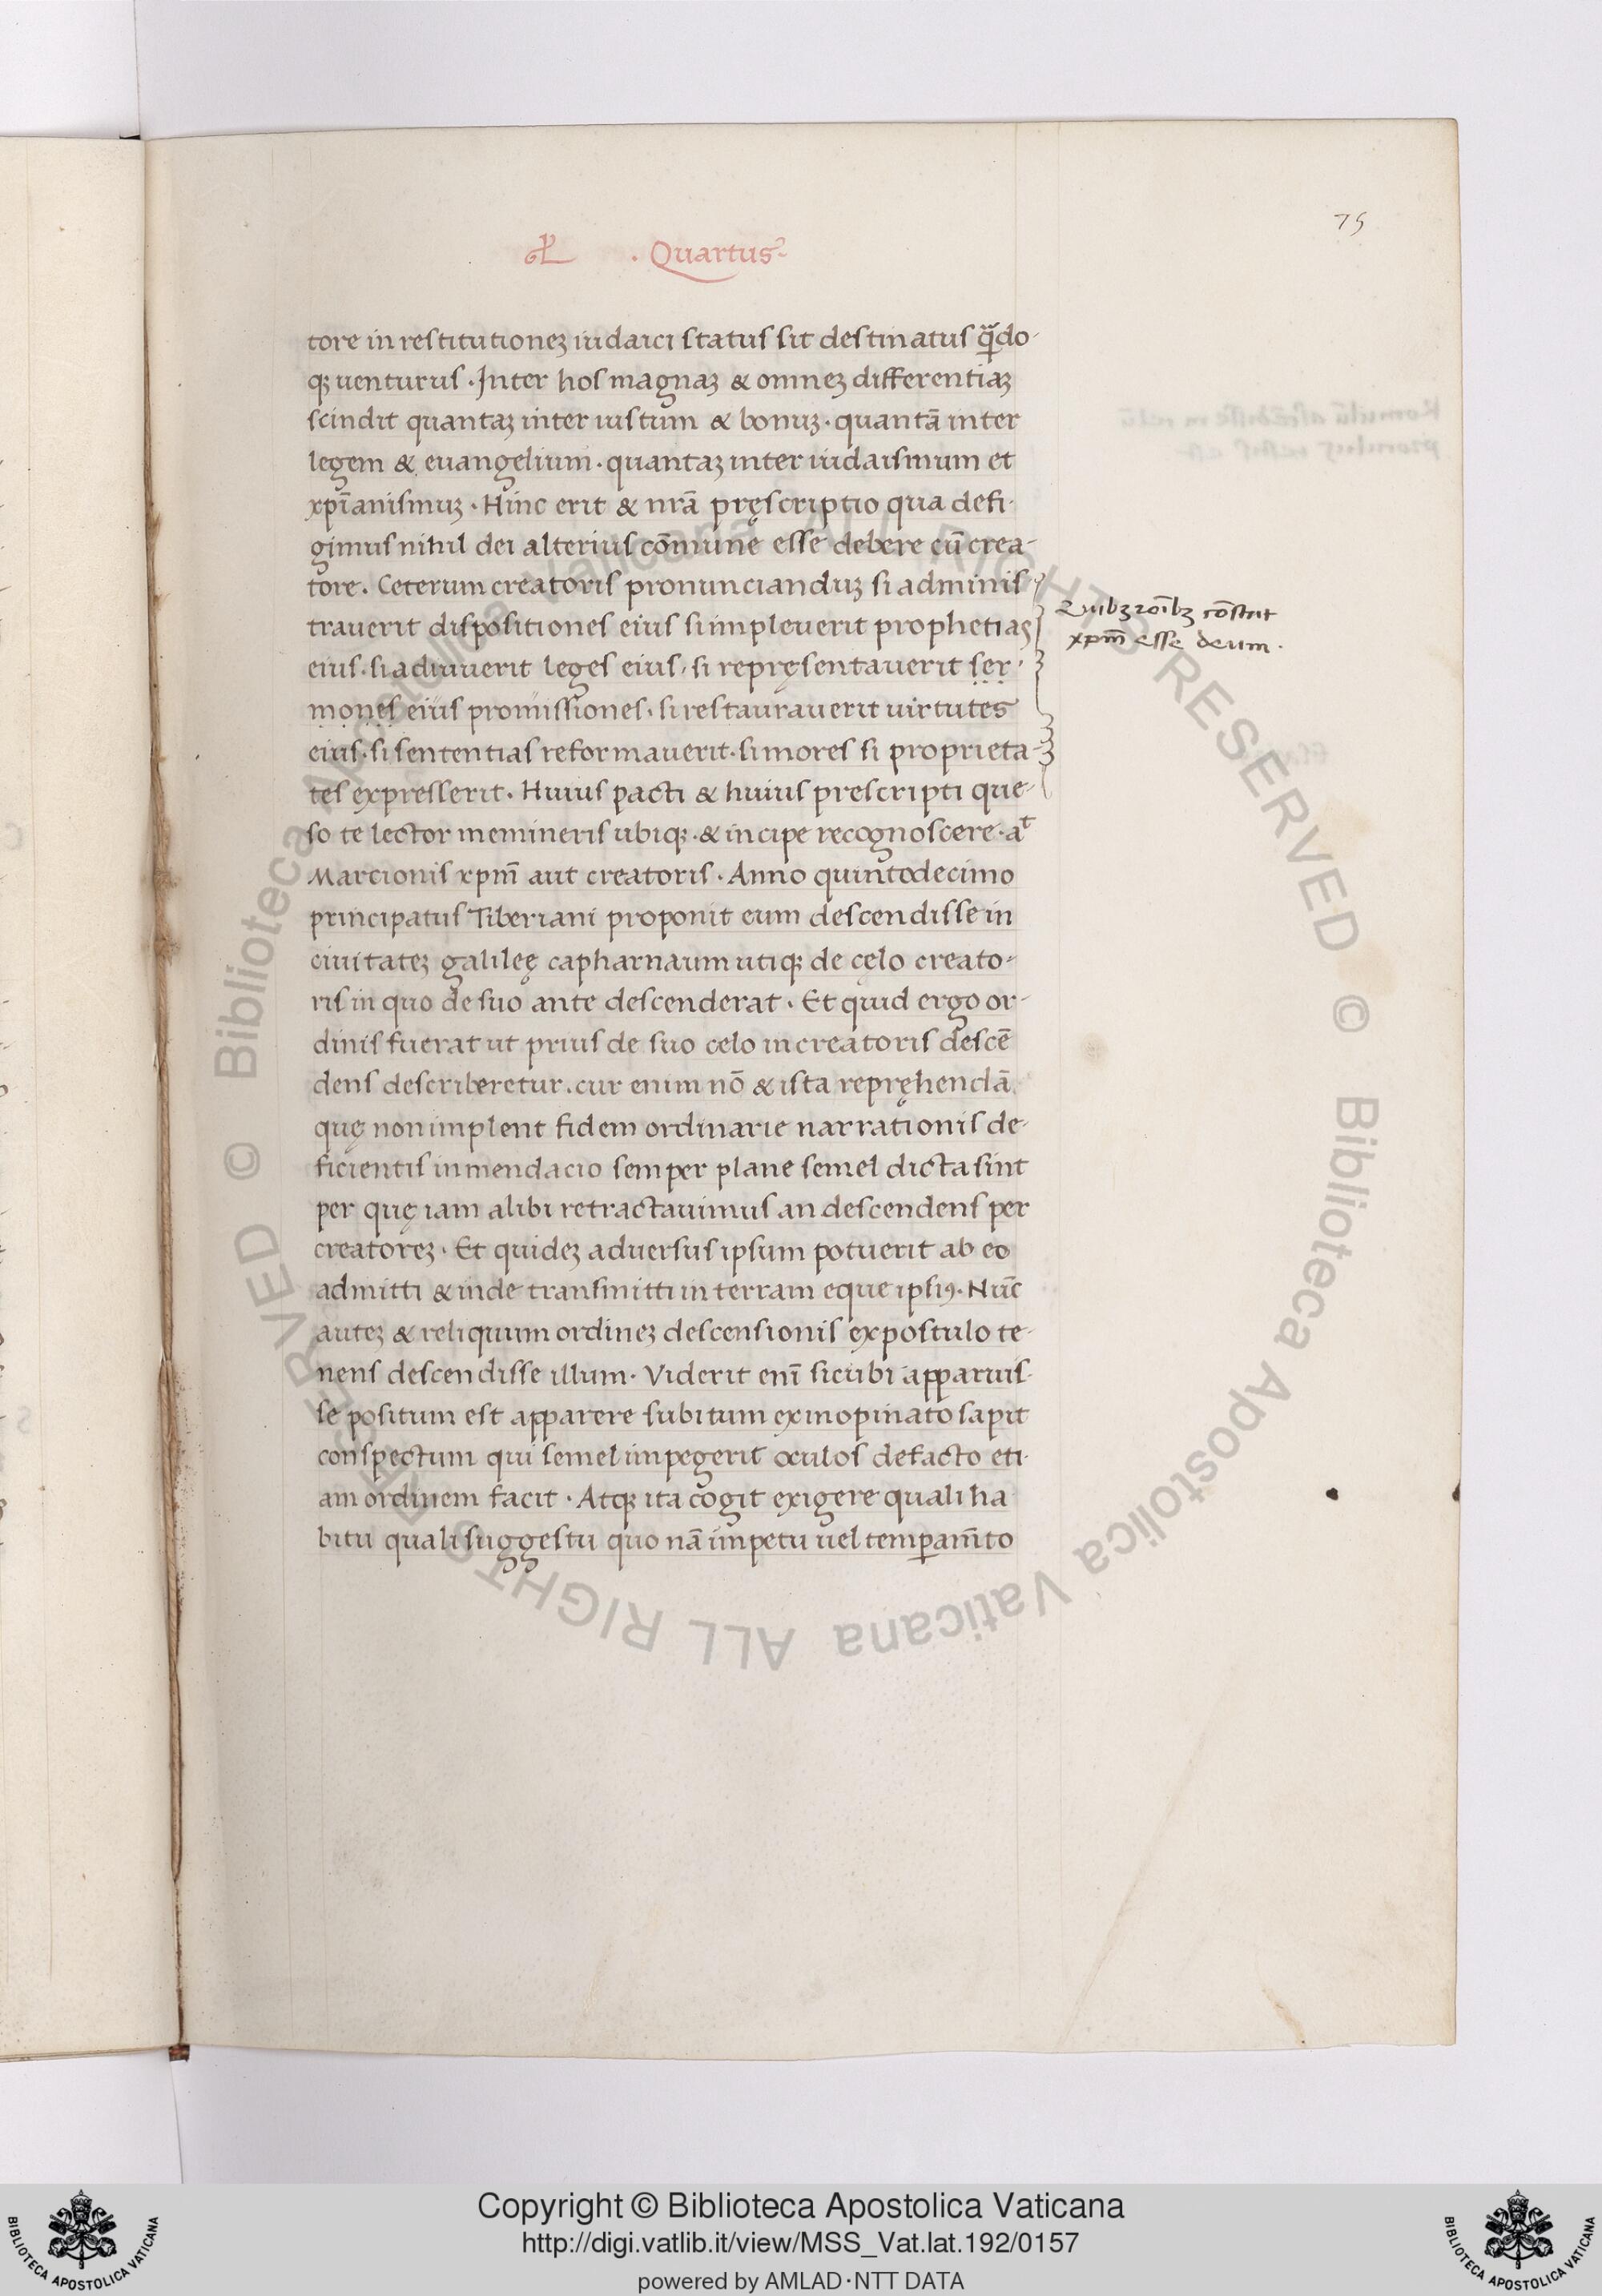 75
. Quartus
tore in restitutioneꝫ iudaici status sit destinatus qͣ̄do-
qꝫ uenturus · Inter hos magnaꝫ & omneꝫ differentiaꝫ
scindit quantaꝫ inter iustum & bonuꝫ · quantā inter
legem & euangelium · quantaꝫ inter iudaismum et
xpīanismuꝫ · Hinc erit & nrā pręscriptio qua defi-
gimus nihil dei alterius cōmune esse debere cū crea-
tore . Ceterum creatoris pronuncianduꝫ si adminis-
trauerit dispositiones eius si impleuerit prophetias
eius · si adiuuerit leges eius · si repręsentauerit ser-
mones eius promissiones · si restaurauerit uirtutes
eius · si sententias reformauerit · si mores si proprieta-
tes expresserit . Huius pacti & huius prescripti que-
so te lector memineris ubiqꝫ · & incipe recognoscere · aͭ
Marcionis xpm̄ aut creatoris · Anno quintodecimo
principatus Tiberiani proponit eum descendisse in
ciuitateꝫ galileę capharnaum utiqꝫ de cęlo creato-
ris in quo de suo ante descenderat · Et quid ergo or-
dinis fuerat ut prius de suo celo in creatoris descē
dens describeretur . cur enim nō & ista repręhendā
quę non implent fidem ordinarie narrationis de-
ficientis in mendacio semper plane semel dicta sint
per quę iam alibi retractauimus an descendens per
creatoreꝫ · Et quideꝫ aduersus ipsum potuerit ab eo
admitti & inde transmitti in terram eque ipsiꝰ · Nūc
auteꝫ & reliquum ordineꝫ descensionis expostulo te-
nens descendisse illum · Viderit enī sicubi apparuis-
se positum est apparere subitum ex inopinato sapit
conspectum qui semel impegerit oculos de facto eti-
am ordinem facit · Atqꝫ ita cogit exigere quali ha
bitu quali suggestu quo nā impetu uel temꝑam̄to
Quibꝫ roībꝫ cōstat
xpm̄ esse deum ·
Copyright © Biblioteca Apostolica Vaticana
http://digi.vatlib.it/view/MSS_Vat.lat.192/0157
powered by AMLAD·NTT DATA
BIBLIOTECA APOSTOLICA VATICANA
BIBLIOTECA APOSTOLICA VATICANA
© Biblioteca Apostolica Vaticana ALL RIGHTS RESERVED
© Biblioteca Apostolica Vaticana ALL RIGHTS RESERVED